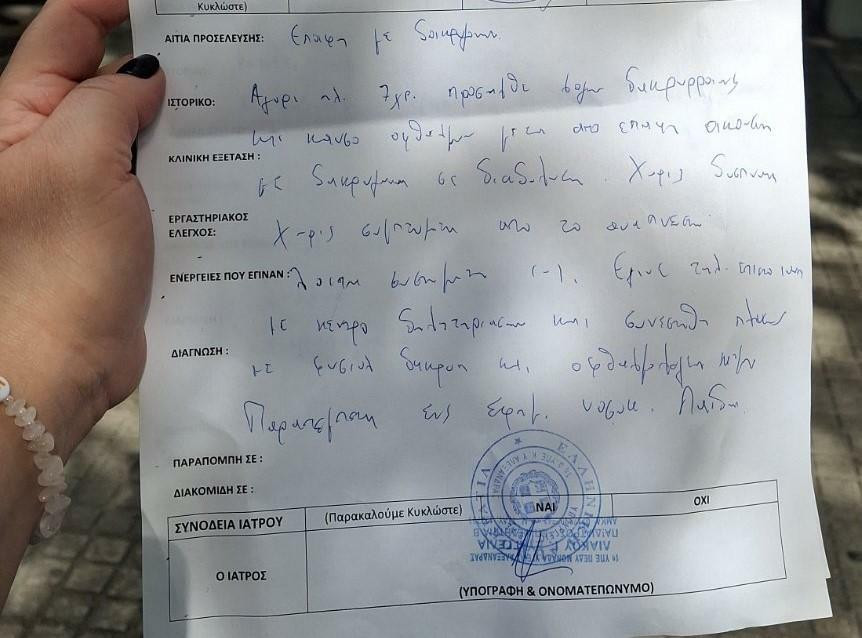 Κυκλώστε)
ΑΙΤΙΑ ΠΡΟΣΕΛΕΥΣΗΣ: Επαφη με δακρυγονα.
ΙΣΤΟΡΙΚΟ: Αγορι ηλ. 7χρ. προσηλθε λογω δακρυρροιας
και καυσο οφθαλμων μετα απο επαφη
ΚΛΙΝΙΚΗ ΕΞΕΤΑΣΗ :
με δακρυγονα σε διαδηλωση. Χωρις δυσπνοια
ΕΡΓΑΣΤΗΡΙΑΚΟΣ
ΕΛΕΓΧΟΣ: Χωρις συμπτωματα απο το αναπνευστ.
ΕΝΕΡΓΕΙΕΣ ΠΟΥ ΕΓΙΝΑΝ : Λοιπα συστηματα (-). Εγινε τηλ. επικοινωνια
με κεντρο δηλητηριασεων και συνεστηθη πλυση
ΔΙΑΓΝΩΣΗ :
με φυσιολ δακρυα και οφθαλμολογικη
Παραπεμπεται εις εφημ. νοσοκ. Παιδων
ΠΑΡΑΠΟΜΠΗ ΣΕ :
ΔΙΑΚΟΜΙΔΗ ΣΕ :
ΣΥΝΟΔΕΙΑ ΙΑΤΡΟΥ (Παρακαλούμε Κυκλώστε) ΝΑΙ ΟΧΙ
Ο ΙΑΤΡΟΣ
(ΥΠΟΓΡΑΦΗ & ΟΝΟΜΑΤΕΠΩΝΥΜΟ)